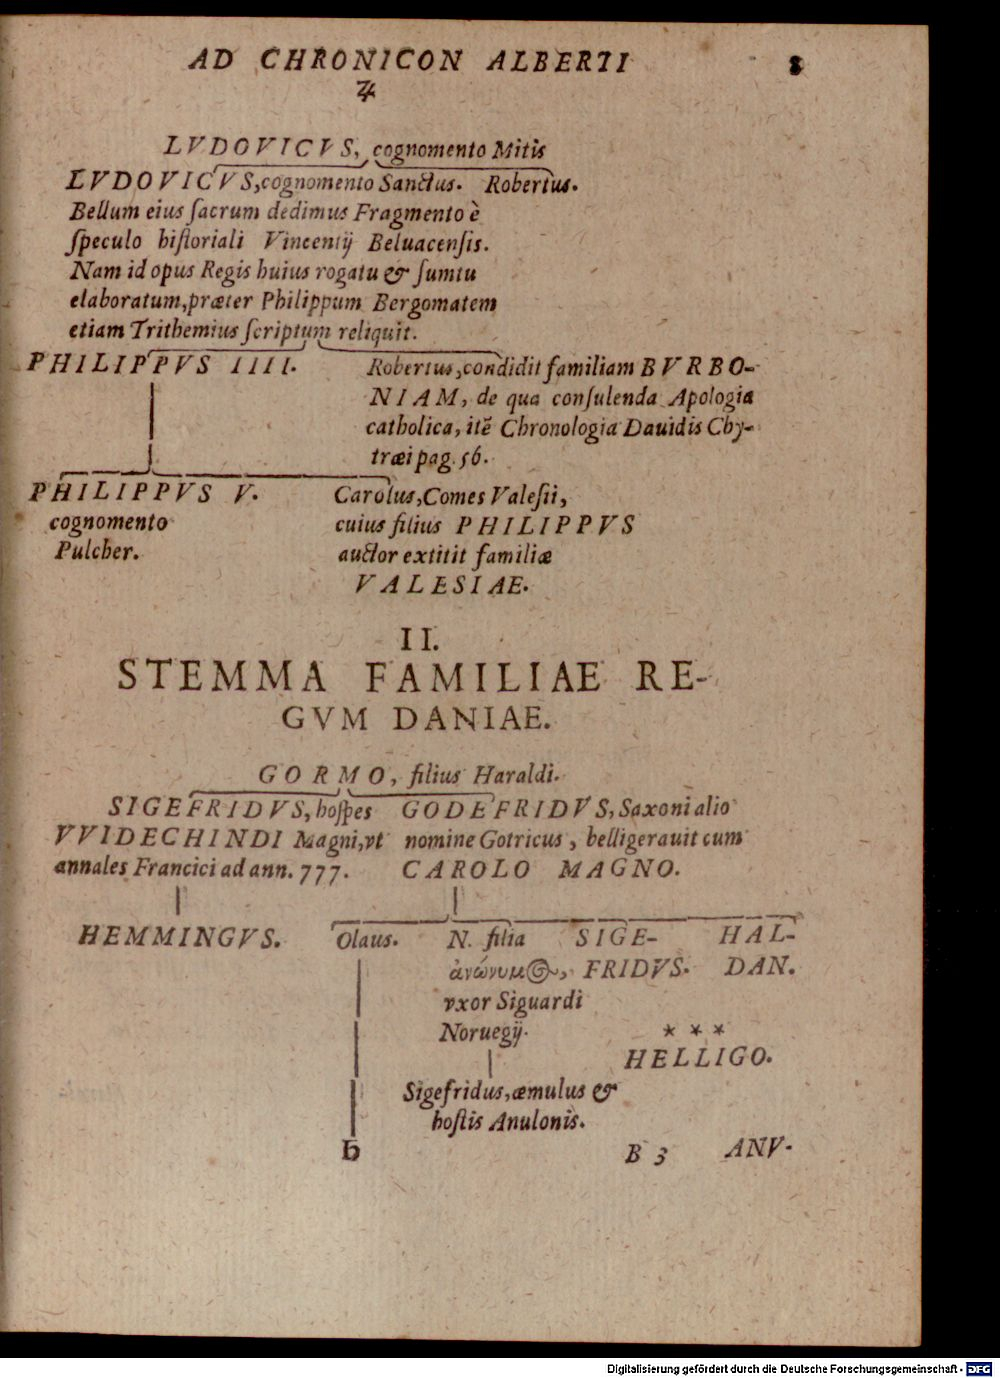 AD CHRONICON ALBERTI 8
♃
LVDOVICVS, cognomento Mitis
LVDOVICVS, cognomento Sanctus. Robertus.
Bellum eius ſacrum dedimus Fragmento è
ſpeculo hiſtoriali Vincentij Beluacenſis.
Nam id opus Regis huius rogatu & ſumtu
elaboratum, præter Philippum Bergomatem
etiam Trithemius ſcriptum reliquit.
PHILIPPVS IIII. Robertus, condidit familiam BVRBO-
NIAM, de qua conſulenda Apologia
catholica, itẽ Chronologia Dauidis Chy-
træi pag. 56.
PHILIPPVS V. Carolus, Comes Valeſii,
cognomento cuius filius PHILIPPVS
Pulcher. auctor extitit familiæ
VALESIAE.
II.
STEMMA FAMILIAE RE-
GVM DANIAE.
GORMO, filius Haraldi.
SIGEFRIDVS, hoſpes GODEFRIDVS, Saxoni alio
VVIDECHINDI Magni, vt nomine Gotricus, belligerauit cum
annales Francici ad ann. 777. CAROLO MAGNO.
HEMMINGVS. Olaus. N. filia SIGE- HAL-
ἀνώνυμος, FRIDVS. DAN.
vxor Siguardi
Noruegij. * * *
HELLIGO.
Sigefridus, æmulus &
hoſtis Anulonis.
♄ B 3 ANV-
Digitalisierung gefördert durch die Deutsche Forschungsgemeinschaft - DFG